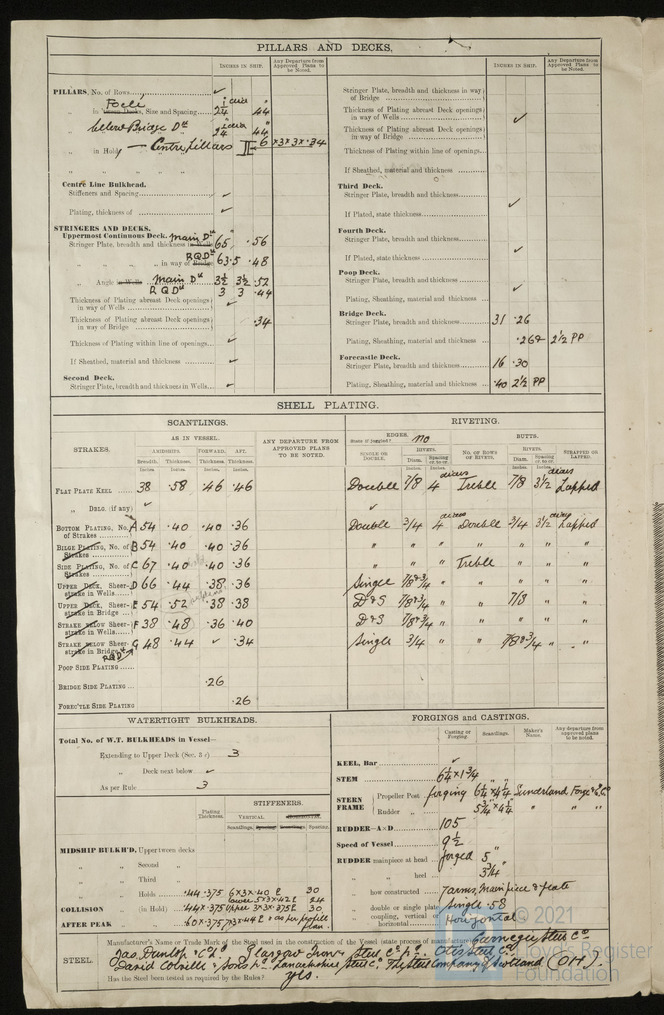 PILLARS AND DECKS.
INCHES IN SHIP.
Any Departure from Approved Plans to be Noted.
PILLARS, No. of Rows ✓
Focle
in Tween Decks, Size and Spacing
Centre Pillars
6 × 3 × 3 × .34
Centre Line Bulkhead.
Stiffeners and Spacing ✓
Plating, thickness of ✓
STRINGERS AND DECKS.
Uppermost Continuous Deck. Main Dk
Stringer Plate, breadth and thickness in Wells 65 .56
RQDk
in way of Bridge 63.5 .48
Angle in Wells Main Dk 3½ 3½ .52
RQDk 3 3 .44
Thickness of Plating abreast Deck openings in way of Wells ✓
Thickness of Plating abreast Deck openings in way of Bridge .34
Thickness of Plating within line of openings ✓
If Sheathed, material and thickness ✓
Second Deck.
Stringer Plate, breadth and thickness in Wells ✓
INCHES IN SHIP.
Any Departure from Approved Plans to be Noted.
Stringer Plate, breadth and thickness in way of Bridge
Thickness of Plating abreast Deck openings in way of Wells ✓
Thickness of Plating abreast Deck openings in way of Bridge
Thickness of Plating within line of openings
If Sheathed, material and thickness
Third Deck.
Stringer Plate, breadth and thickness
If Plated, state thickness ✓
Fourth Deck.
Stringer Plate, breadth and thickness
If Plated, state thickness ✓
Poop Deck.
Stringer Plate, breadth and thickness
Plating, Sheathing, material and thickness ✓
Bridge Deck.
Stringer Plate, breadth and thickness 31 .26
Plating, Sheathing, material and thickness .26 & 2½ PP
Forecastle Deck.
Stringer Plate, breadth and thickness 16 .30
Plating, Sheathing, material and thickness .40 2½ PP
SHELL PLATING.
SCANTLINGS.
RIVETING.
STRAKES.
AS IN VESSEL.
AMIDSHIPS. FORWARD. AFT.
Breadth. Thickness. Thickness. Thickness.
Inches. Inches. Inches. Inches.
ANY DEPARTURE FROM APPROVED PLANS TO BE NOTED.
EDGES. no
State if joggled?
SINGLE OR DOUBLE.
RIVETS.
Diam. Spacing cr. to cr.
BUTTS.
NO. OF ROWS OF RIVETS.
RIVETS.
Diam. Spacing cr. to cr.
STRAPPED OR LAPPED.
FLAT PLATE KEEL 38 .58 .46 .46 Double 7/8 4 diars Treble 7/8 3½ diars Lapped
„ DBLG. (if any) ✓ ✓
BOTTOM PLATING, No. of Strakes A 54 .40 .40 .36 Double 3/4 4 diars Double 3/4 3½ diars Lapped
BILGE PLATING, No. of Strakes B 54 .40 .40 .36 „ „ „ „ „ „ „
SIDE PLATING, No. of Strakes C 67 .40 .40 .36 „ „ „ Treble „ „ „
UPPER DECK, Sheerstrake in Wells D 66 .44 .38 .36 Single 7/8 & 3/4 „ „ „ „ „
UPPER DECK, Sheerstrake in Bridge E 54 .52 .38 .38 D & S 7/8 & 3/4 „ „ 7/8 „ „
STRAKE below Sheerstrake in Wells F 38 .48 .36 .40 D & S 7/8 & 3/4 „ „ „ „ „
STRAKE below Sheerstrake in Bridge G 48 .44 ✓ .34 Single 3/4 „ „ 7/8 & 3/4 „ „
RQDk
POOP SIDE PLATING
BRIDGE SIDE PLATING .26
FOREC'TLE SIDE PLATING .26
WATERTIGHT BULKHEADS.
Total No. of W.T. BULKHEADS in Vessel—
Extending to Upper Deck (Sec. 3 c) 3
„ Deck next below ✓
As per Rule 3
Plating Thickness.
STIFFENERS.
VERTICAL
Scantlings. Spacing. Scantlings. Spacing.
MIDSHIP BULK'D, Upper tween decks
„ Second „
„ Third „
„ Holds .44 .375 6 × 3 × .40 30
COLLISION „ (in Hold)
AFTER PEAK
as per profile plan
FORGINGS and CASTINGS.
Casting or Forging. Scantlings. Maker's Name. Any departure from approved plans to be noted.
KEEL, Bar ✓
STEM 6¼ × 1¾
STERN FRAME
Propeller Post forging 6¼ × 4¼ Sunderland Forge & E Co
Rudder „ 5¾ × 4¼ „ „
RUDDER—A×D 105
Speed of Vessel 9½
RUDDER mainpiece at head forged 5"
„ heel 3¾"
„ how constructed 7 arms, Main piece & plate
„ double or single plate single .58
„ coupling, vertical or horizontal Horizontal
STEEL.
Manufacturer's Name or Trade Mark of the Steel used in the construction of the Vessel (state process of manufacture) Carnegie Steel Co
Jas. Dunlop & Co Ld. Glasgow Iron & Steel Co Ld. Otis Steel Co
David Colville & Sons Ld Lanarkshire Steel Co The Steel Company of Scotland (OH).
Has the Steel been tested as required by the Rules? yes.
© 2021
Lloyd's Register
Foundation